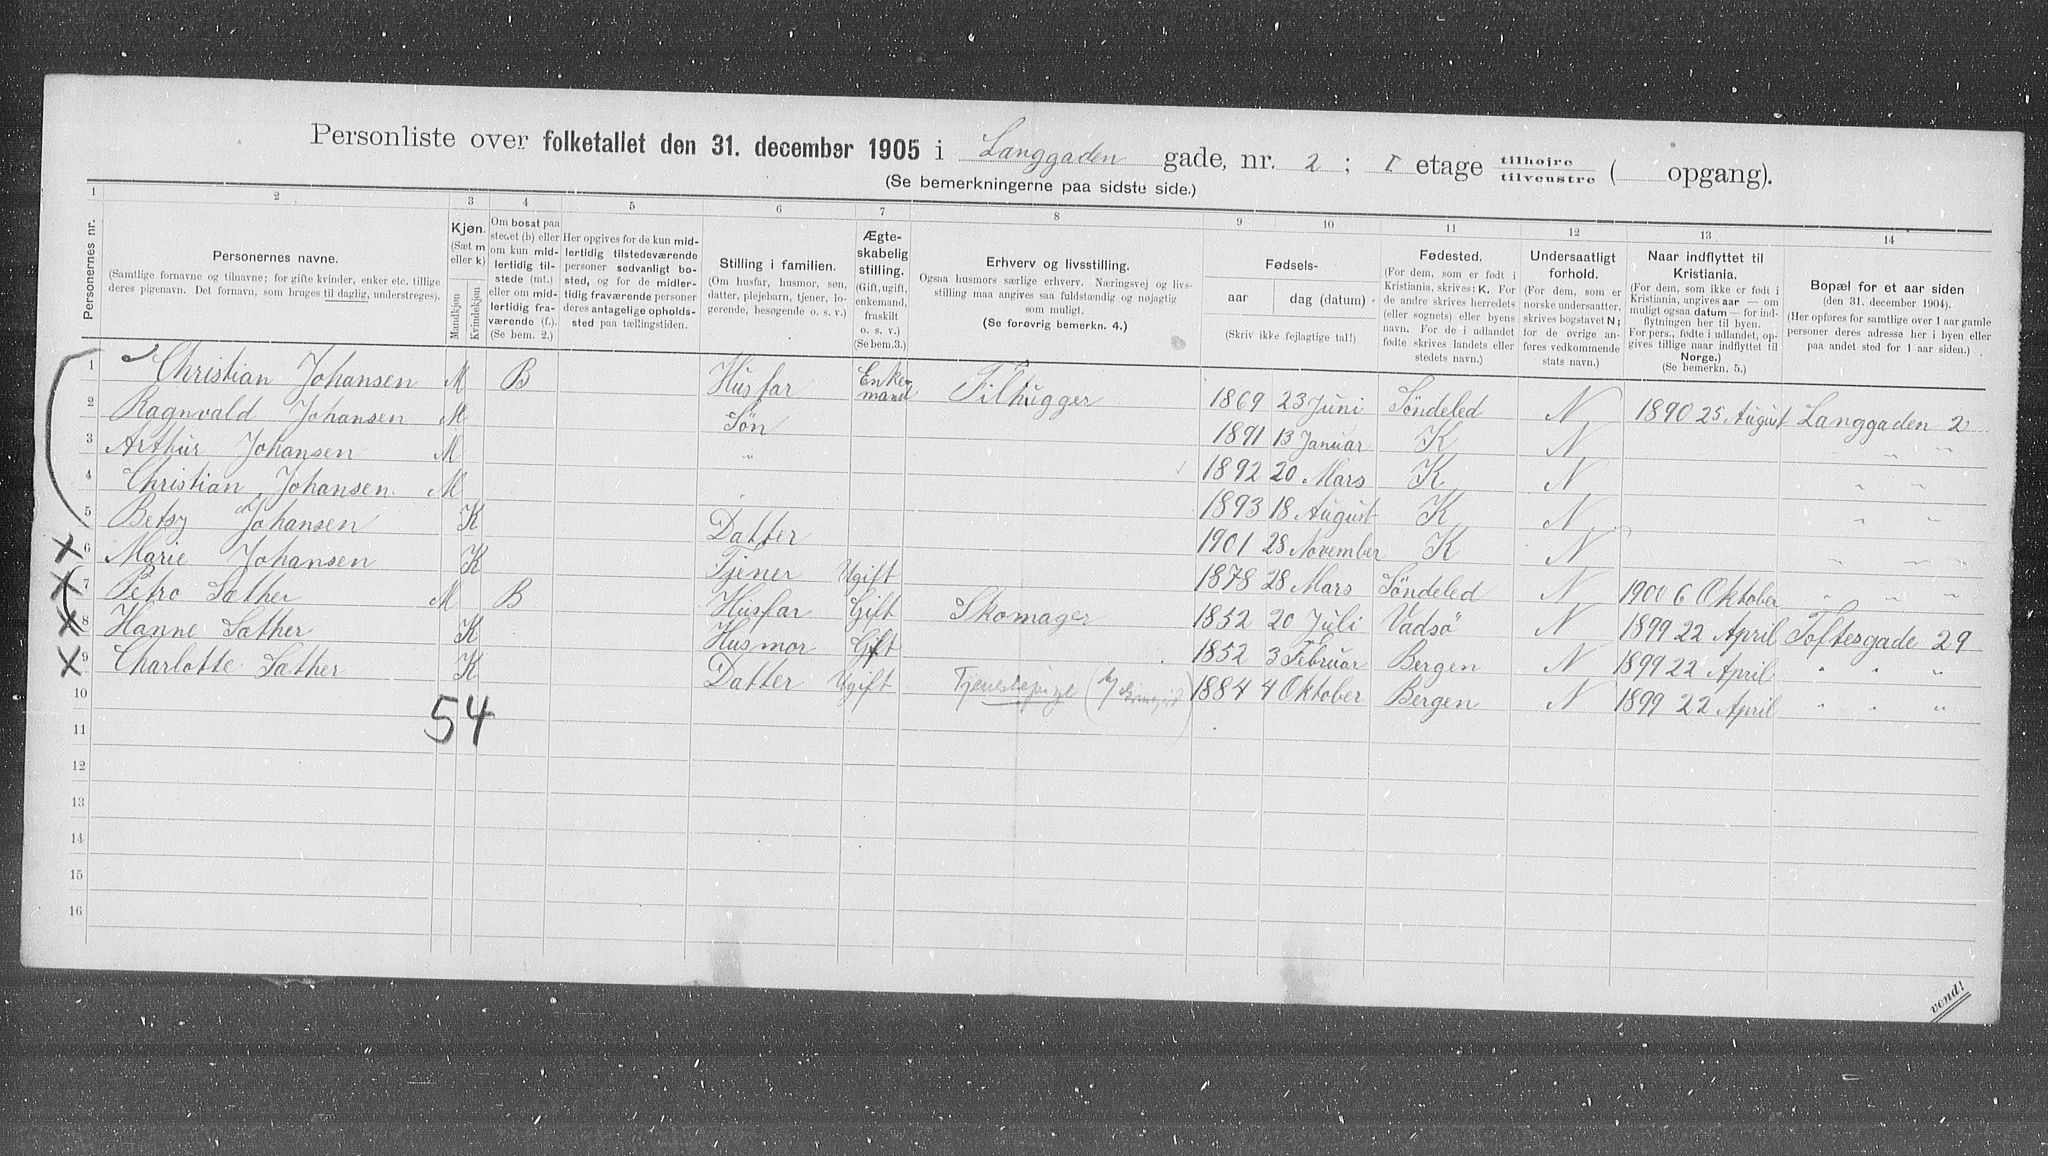 Personliste over folketallet den 31. december 1905 i Langgaden gade, nr. 2 ; 1 etage tilhøjre tilvenstre ( opgang).
(Se bemerkningerne paa sidste side.)
1 2 3 4 5 6 7 8 9 10 11 12 13 14
Personernes nr.
Personernes navne.
(Samtlige fornavne og tilnavne; for gifte kvinder, enker etc. tillige
deres pigenavn. Det fornavn, som bruges til daglig, understreges).
Kjøn.
(Sæt m
eller k)
Mandkjøn
Kvindekjøn
Om bosat paa
stedet (b) eller
om kun mid-
lertidig til-
stede (mt.)
eller om mid-
lertidig fra-
værende (f.).
(Se bem. 2.)
Her opgives for de kun mid-
lertidig tilstedeværende
personer sedvanligt bo-
sted, og for de midler-
tidig fraværende personer
deres antagelige opholds-
sted paa tællingstiden.
Stilling i familien.
(Om husfar, husmor, søn,
datter, plejebarn, tjener, lo-
gerende, besøgende o. s. v.)
Ægte-
skabelig
stilling.
(Gift, ugift,
enkemand,
fraskilt
o. s. v.)
(Se bem.3.)
Erhverv og livsstilling.
Ogsaa husmors særlige erhverv. Næringsvej og livs-
stilling maa angives saa fuldstændig og nøjagtig
som muligt.
(Se forøvrig bemerkn. 4.)
Fødsels-
aar
dag (datum)
(Skriv ikke fejlagtige tal!)
Fødested.
(For dem, som er født i
Kristiania, skrives: K. For
de andre skrives herredets
(eller sognets) eller byens
navn. For de i udlandet
fødte skrives landets eller
stedets navn.)
Undersaatligt
forhold.
(For dem, som er
norske undersaatter,
skrives bogstavet N;
for de øvrige an-
føres vedkommende
stats navn.)
Naar indflyttet til
Kristiania.
(For dem, som ikke er født i
Kristiania, angives aar — om
muligt ogsaa datum — for ind-
flytningen her til byen.
For pers., født i udlandet, op-
gives tillige naar indflyttet til
Norge.)
(Se bemerkn. 5.)
Bopæl for et aar siden
(den 31. december 1904).
(Her opføres for samtlige over 1 aar gamle
personer deres adresse her i byen eller
paa andet sted for 1 aar siden.)
1 Christian Johansen M B Husfar Enkemand Tilhugger 1869 23 Juni Søndeled N 1890 25 August Langgaden 2
2 Ragnvald Johansen M Søn 1891 13 Januar K N " "
3 Arthur Johansen M " 1892 20 Mars K N " "
4 Christian Johansen. M " 1893 18 August K N " "
5 Betsy Johansen K Datter 1901 28 November K N " "
6 Marie Johansen K Tjener Ugift 1878 28 Mars Søndeled N 1900 6 Oktober " " "
7 Petro Sæther M B Husfar Gift Skomager 1852 20 Juli Vadsö N 1899 22 April Toftesgade 29
8 Hanne Sæther K Husmor Gift 1852 3 Februar Bergen N 1899 22 April " " "
9 Charlotte Sæther K Datter Ugift Tjenestepige 1884 4 Oktober Bergen N 1899 22 April " " "
10
54
11
12
13
14
15
16
vend!